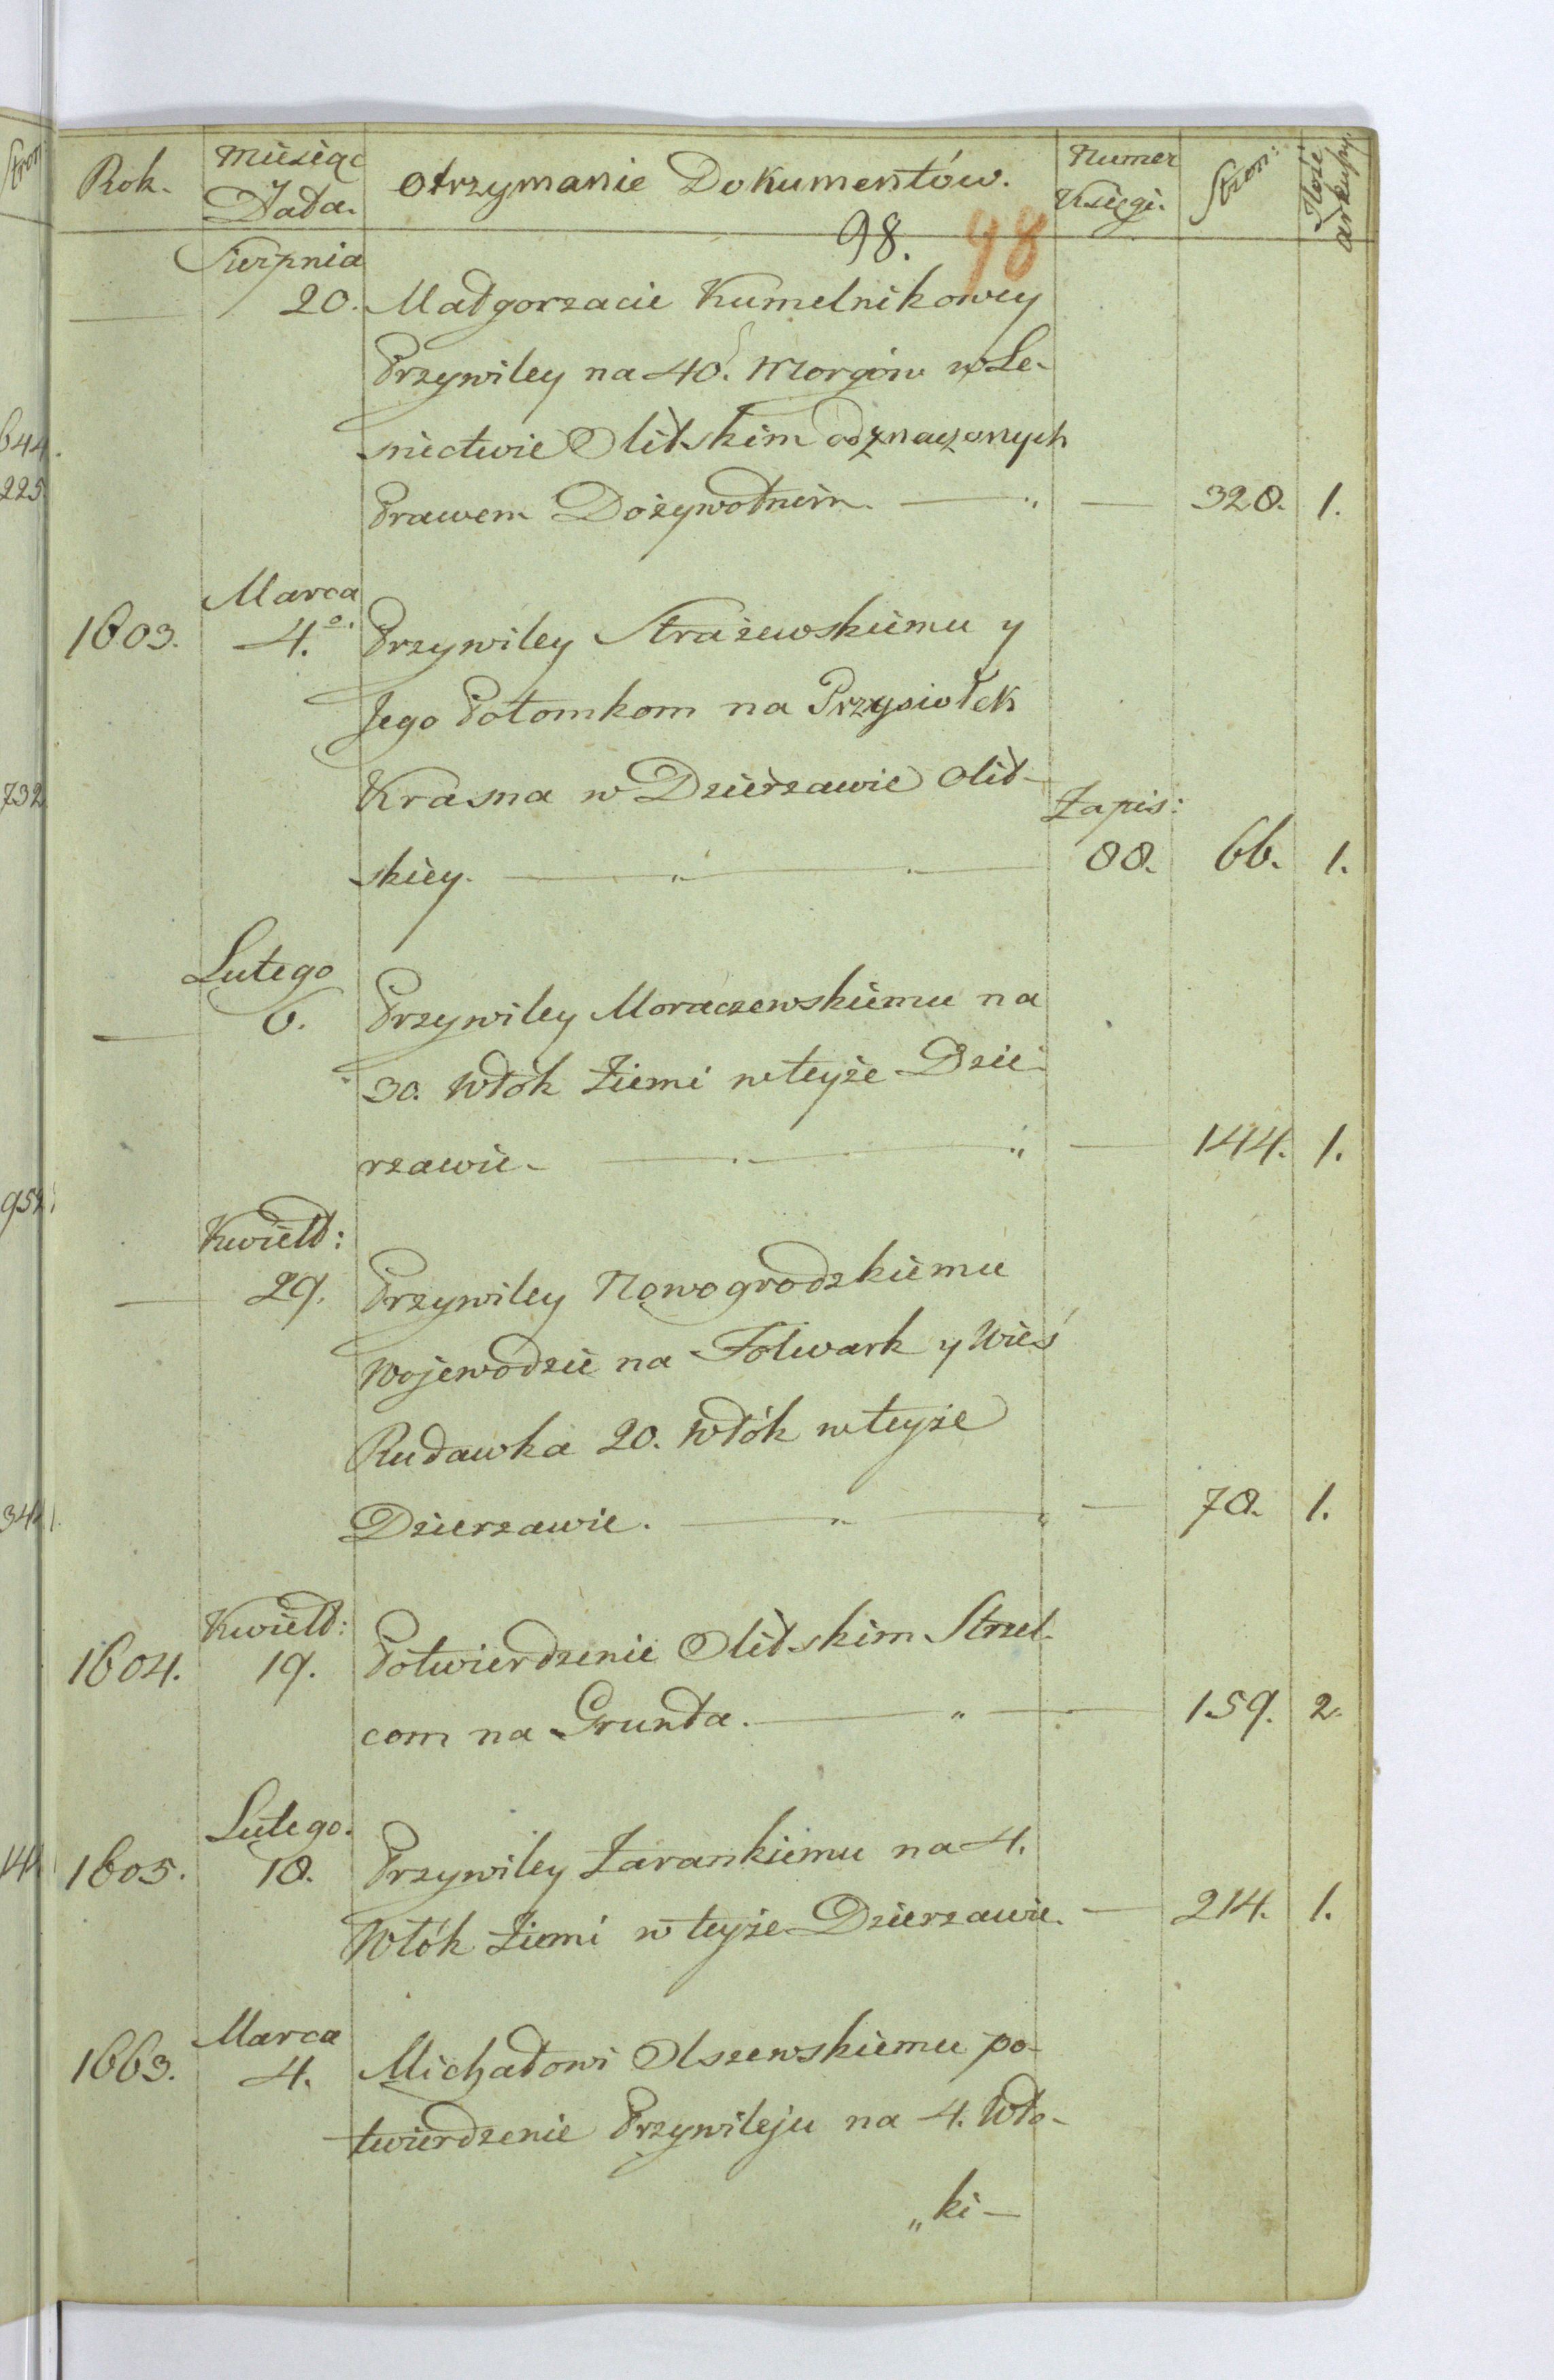 Rok. Miesiąc Data. Otrzymanie Dokumentów. Numer Księgi. Stron: Ilość arkuszy.
98. 98
Sierpnia
— 20. Małgorzacie Kumelnikowey
Przywiley na 40. Morgów w Le-
snictwie Olitskim odznaczonych
Prawem Dożywotnim. — „ — 328. 1.
Marca
1603. 4.o Przywiley Strażewskiemu y
Jego Potomkom na Przysiołek
Krasna w Dzierżawie Olit-
Zapis:
skiey. — „ — „ — 88. 66. 1.
Lutego
— 6. Przywiley Moraczewskiemu na
30. Włók Ziemi w teyże Dzie-
rzawie — „ — „ — 144. 1.
Kwiett:
— 29. Przywiley Nowogrodzkiemu
Wojewodzie na Folwark y Wieś
Rudawka 20. Włók w teyże
Dzierzawie. — „ — „ — 78. 1.
Kwiett:
1604. 19. Potwierdzenie Olitskim Strzel-
com na Grunta. — „ — 159. 2.
Lutego.
1605. 18. Przywiley Zarankiemu na 4.
Włók Ziemi w teyże Dzierzawie. — 214. 1.
Marca
1663. 4. Michałowi Olszewskiemu po-
twierdzenie Przywileju na 4. Wło-
„ki —
Stron:
644.
225
732
952
34
14